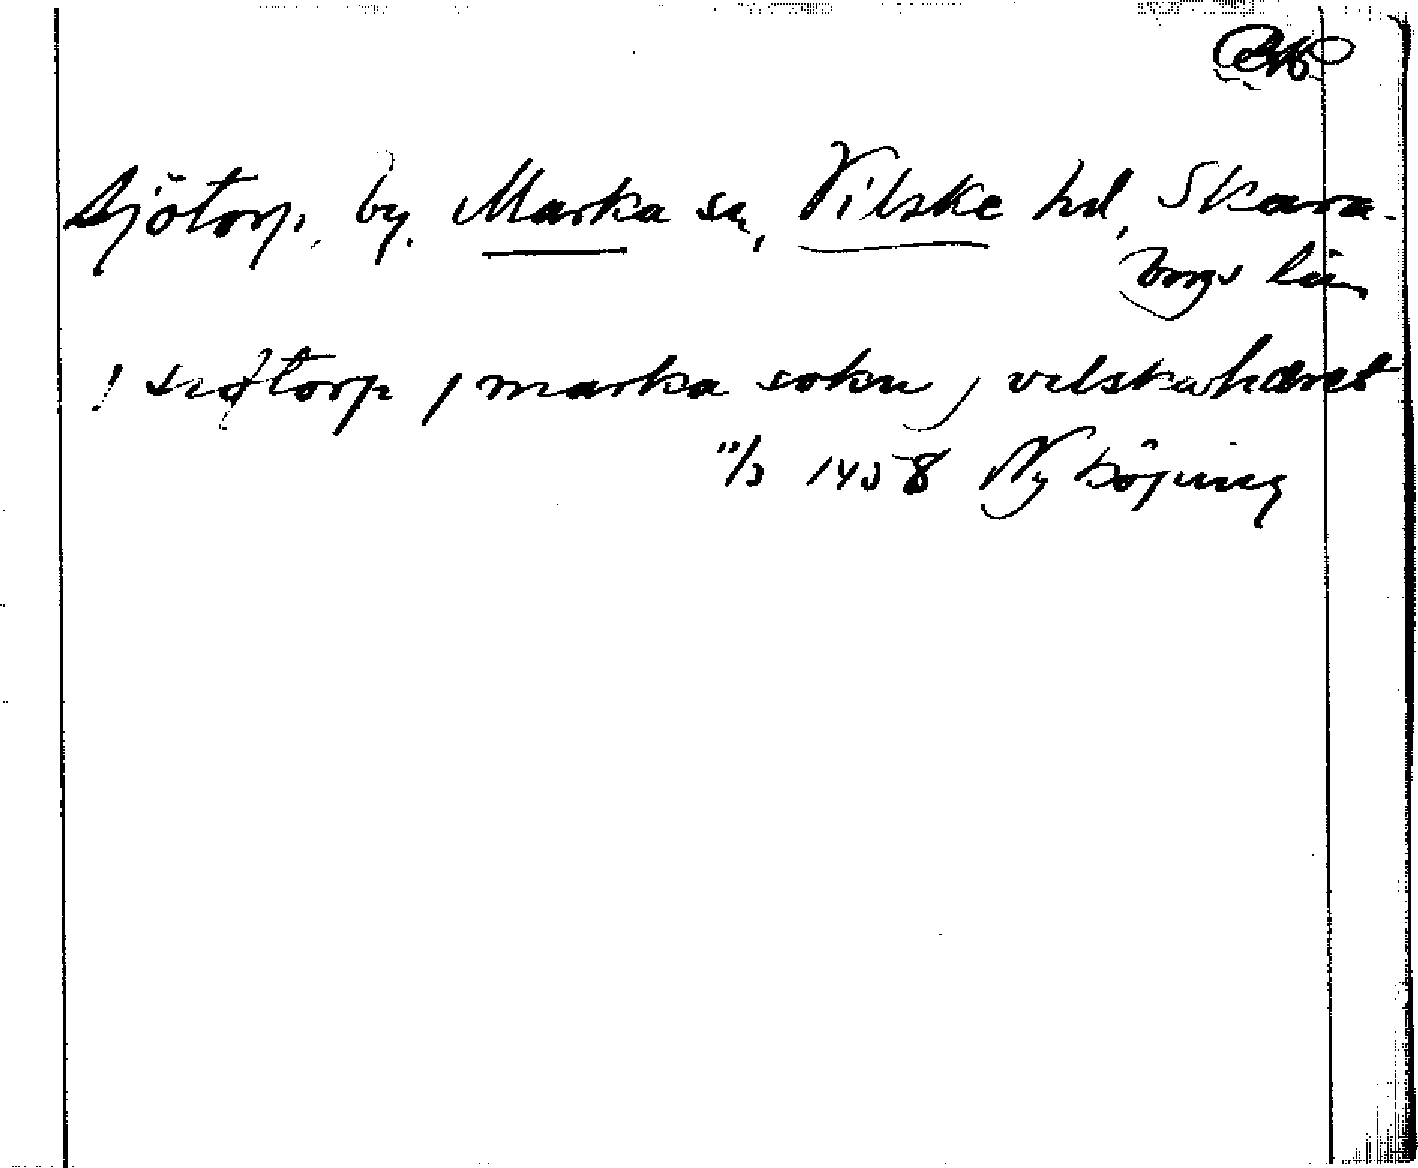 Sjötorp, by. Marka sn, Vilske hd, Skara-
borgs län
j siøtorp j marka sokn j vilskahæret
11/3 1458 Nyköping